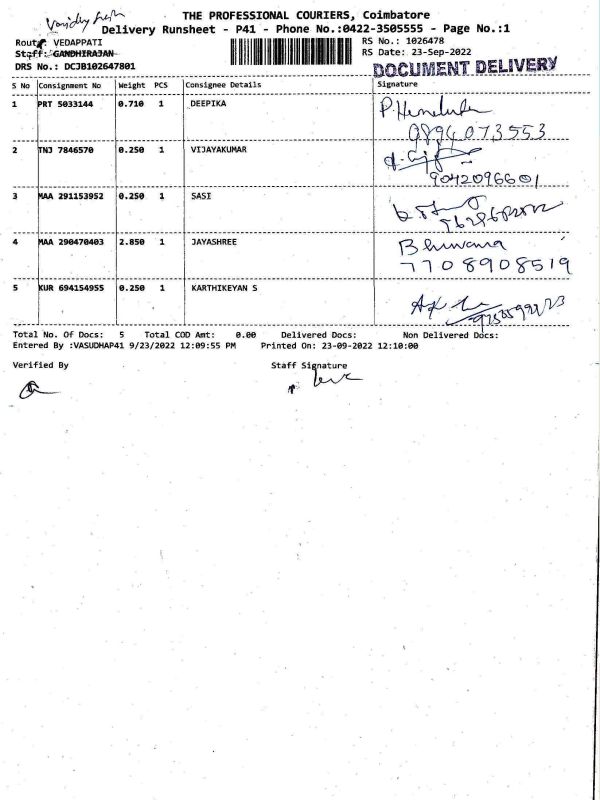 THE PROFESSIONAL COURIERS, Coimbatore
Delivery Runsheet - P41 - Phone No.:0422-3505555 - Page No.:1
Route: VEDAPPATI RS No.: 1026478
Staff: GANDHIRAJAN RS Date: 23-Sep-2022
DRS No.: DCJB102647801 DOCUMENT DELIVERY
S No Consignment No Weight PCS Consignee Details Signature
1 PRT 5033144 0.710 1 DEEPIKA
9894073553
2 TNJ 7846570 0.250 1 VIJAYAKUMAR
9042096601
3 MAA 291153952 0.250 1 SASI
4 MAA 290470403 2.850 1 JAYASHREE Bhuvana
7708908519
5 KUR 694154955 0.250 1 KARTHIKEYAN S
Total No. Of Docs: 5 Total COD Amt: 0.00 Delivered Docs: Non Delivered Docs:
Entered By :VASUDHAP41 9/23/2022 12:09:55 PM Printed On: 23-09-2022 12:10:00
Verified By Staff Signature